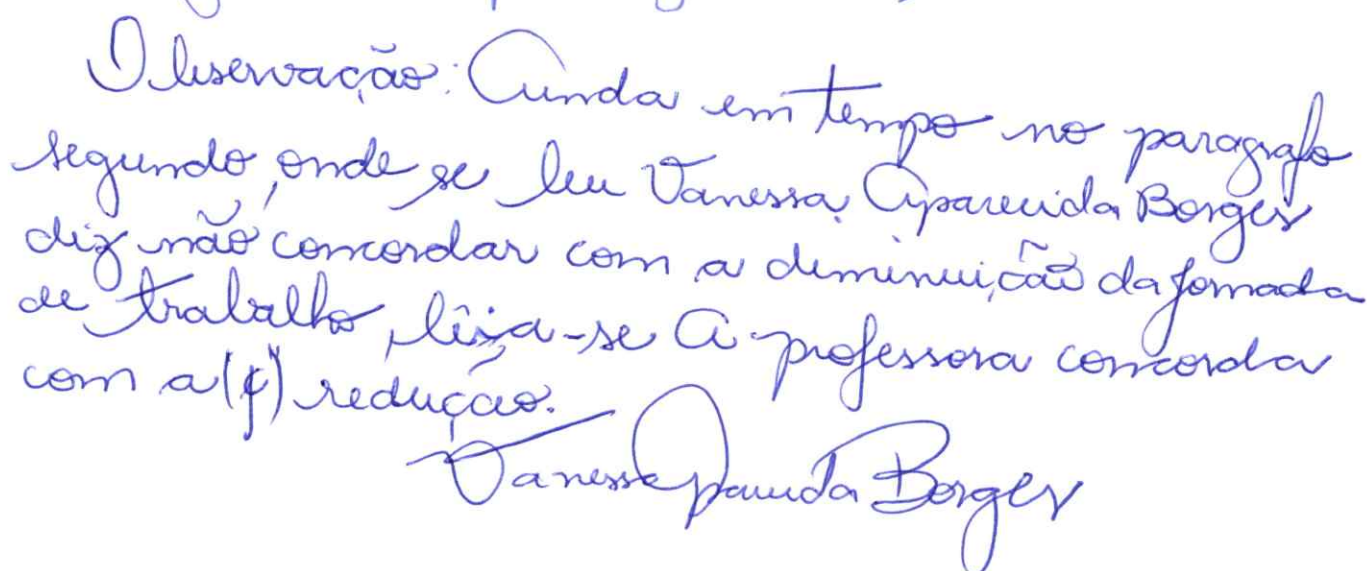 Observação: Ainda em tempo no paragrafo
segundo, onde se leu Vanessa Aparecida Borges
diz não concordar com a diminuição da jornada
de trabalho, leia-se A professora concorda
com a () redução.
Vanessa Aparecida Borges